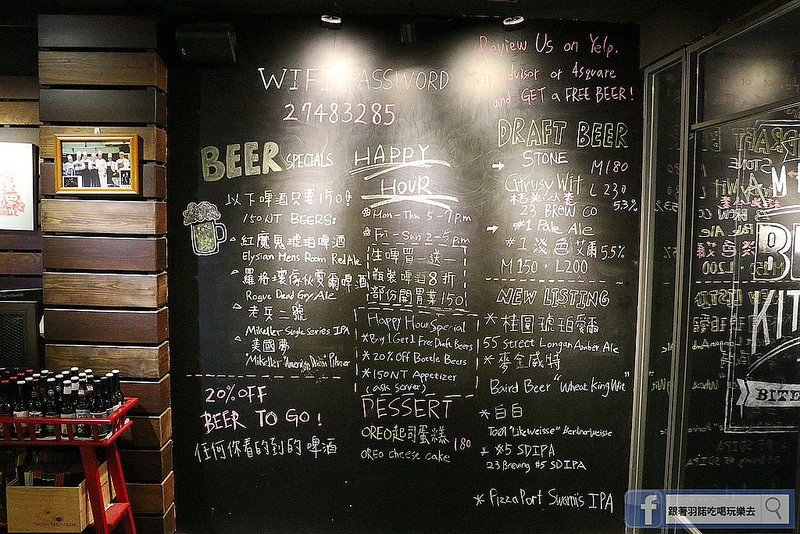 Review Us on Yelp,
advisor or 4square
and GET a FREE BEER!
WIFI PASSWORD
27483285
BEER SPECIALS
以下啤酒只要150@
150NT BEERS:
紅魔鬼琥珀啤酒
Elysian Mens Room Red Ale
羅格壞傢伙愛爾啤酒
Rogue Dead Guy Ale
老二號
Mikeller Single Series IPA
美國夢
Mikeller "American Dream" Pilsner
20% OFF
BEER TO GO!
任何你看的到的啤酒
HAPPY
HOUR
Mon-Thu 5-7p.m
Fri-Sun 2-5p.m
生啤買一送一
瓶裝啤酒8折
部份開胃菜150
Happy Hour Special
*Buy 1 Get 1 Free Draft Beers
*20% Off Bottle Beers
*150NT Appetizer
(ask server)
DESSERT
OREO起司蛋糕 180
OREO cheese cake
DRAFT BEER
→ STONE M180
Citrusy Wit L230
5.3%
23 BREW CO
→ #1 Pale Ale
#1 淡色艾爾 5.5%
M150 · L200
NEW LISTING
*桂圓琥珀愛爾
55 Street Longan Amber Ale
*麥金威特
Baird Beer "Wheat King Wit"
*白白
"Likeweisse" Berlinerweisse
*#5 SDIPA
23 Brewing #5 SDIPA
*Pizza Port Swami's IPA
BITE
f 跟著羽諾吃喝玩樂去